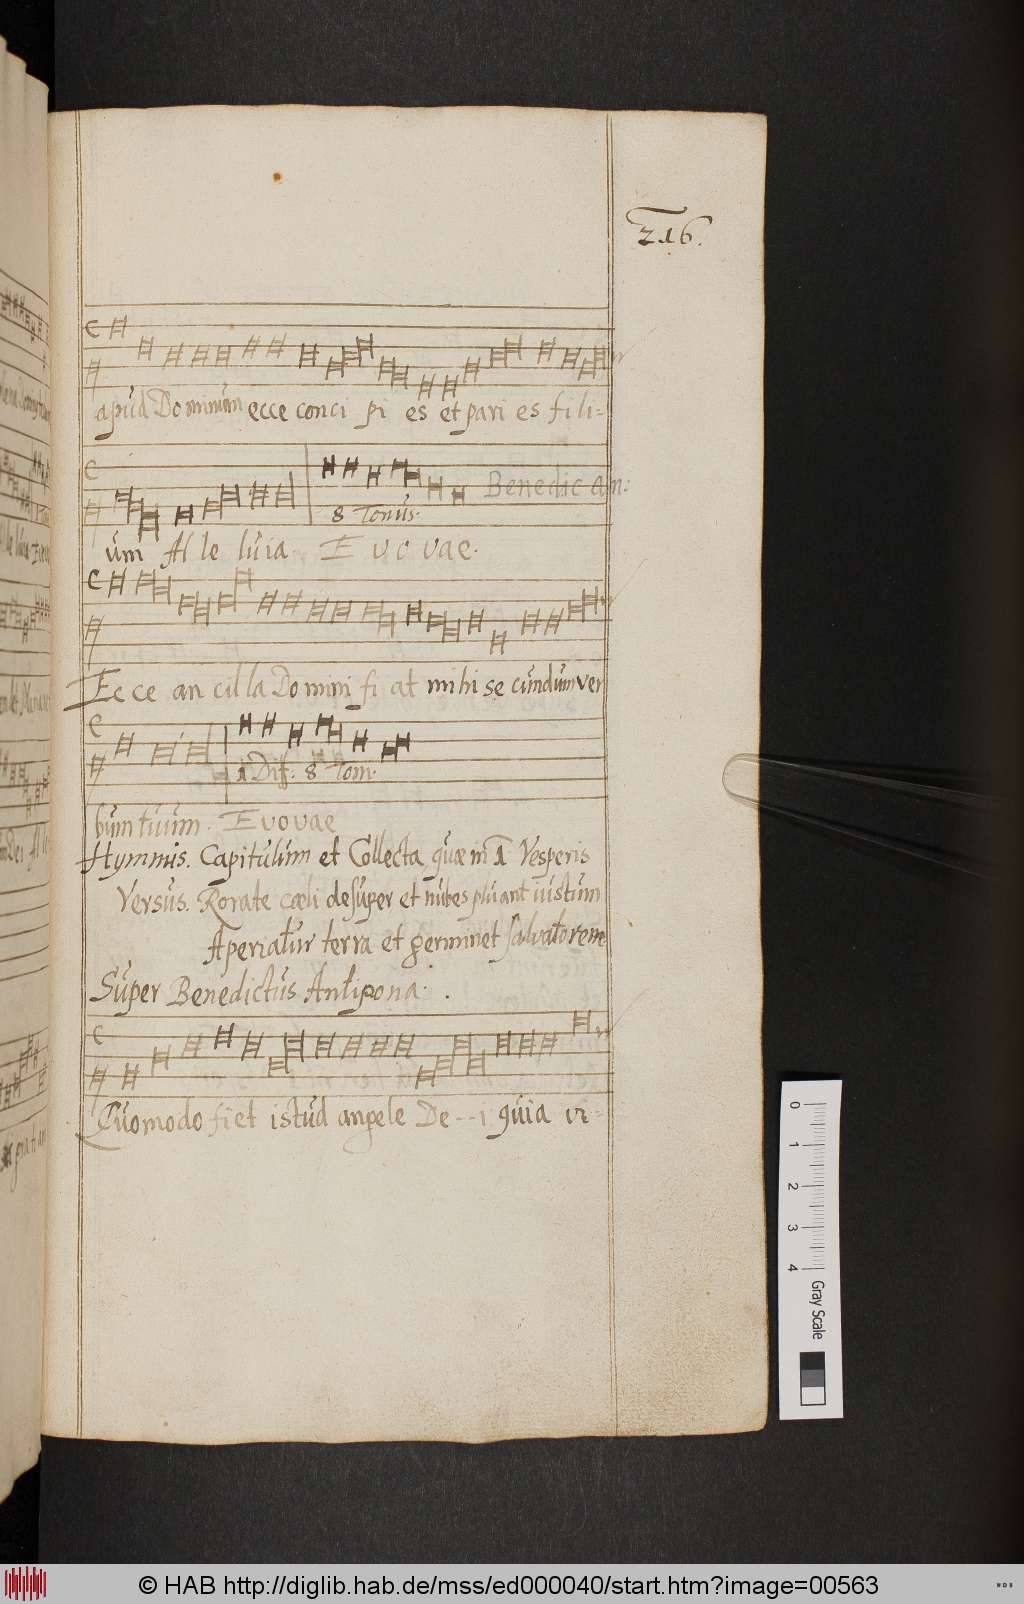 216.
apud Dominum ecce conci pi es et pari es fili-
Benedic an:
8 Tonus.
um Al le luia. E vo vae.
Ecce an cil la Do mini fi at mihi se cundum ver
1 Dif: 8 Tom.
bum tuum. E vo vae
Hymnus. Capitulum et Collecta quæ in 1 Vesperis
Versus. Rorate cæli desuper et nubes pluant iustum
Aperiatur terra et germinet salvatorem
Super Benedictus Antipona.
Quomodo fiet istud angele De--i quia vi-
0
1
2
3
4
Gray Scale
© HAB http://diglib.hab.de/mss/ed000040/start.htm?image=00563